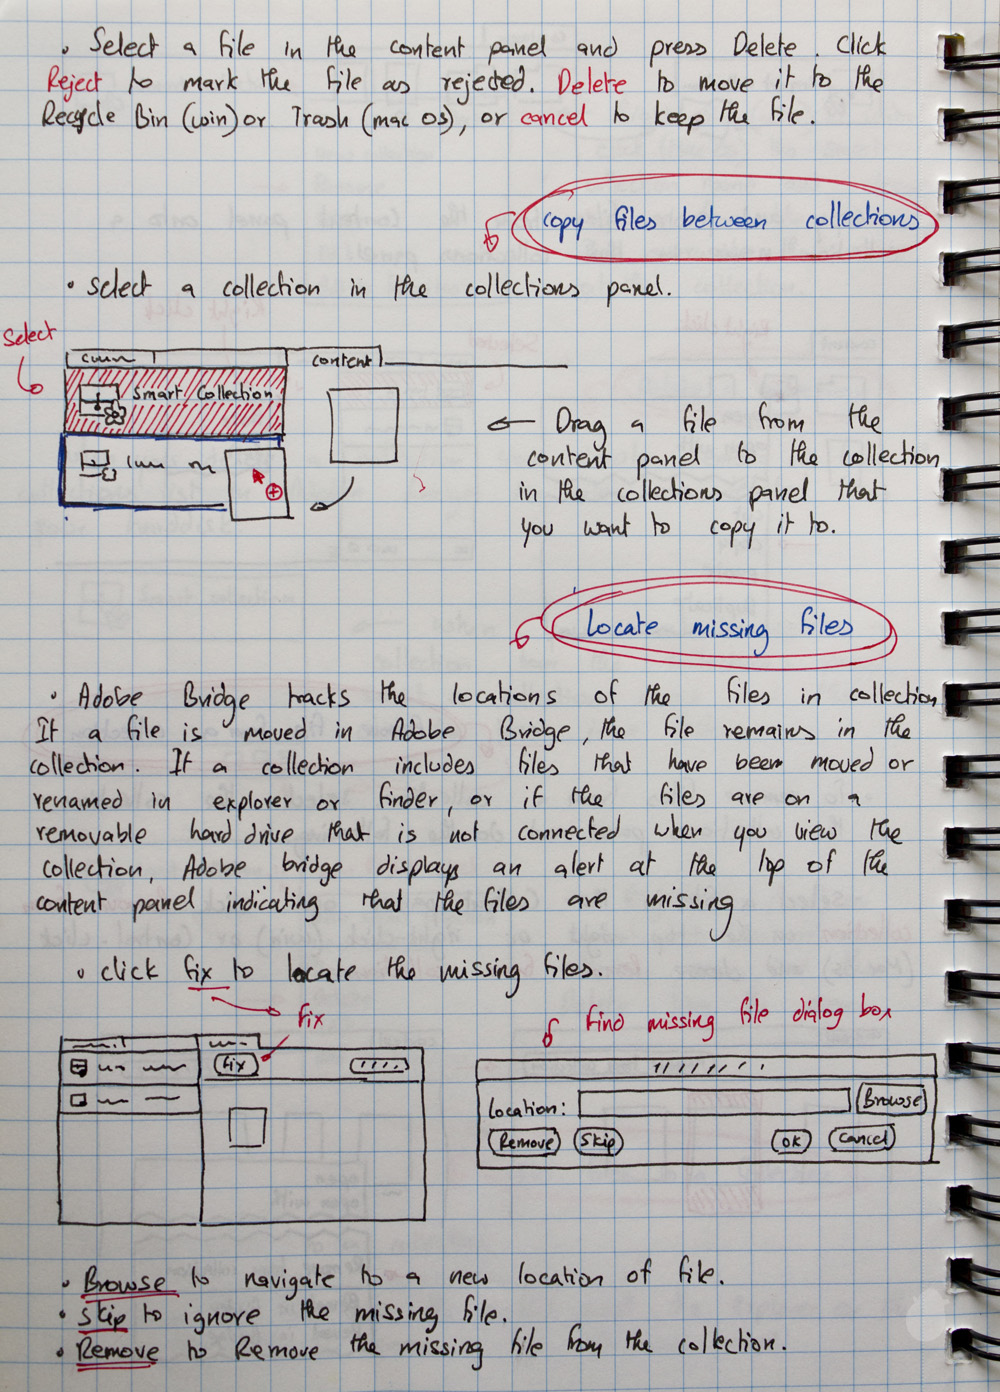 • Select a file in the content panel and press Delete. Click
Reject to mark the file as rejected. Delete to move it to the
Recycle Bin (win) or Trash (mac OS), or cancel to keep the file.
copy files between collections
• select a collection in the collections panel.
Select
content
Smart Collection
← Drag a file from the
content panel to the collection
in the collections panel that
you want to copy it to.
Locate missing files
• Adobe Bridge tracks the locations of the files in collection
If a file is moved in Adobe Bridge, the file remains in the
collection. If a collection includes files that have been moved or
renamed in explorer or finder, or if the files are on a
removable hard drive that is not connected when you view the
collection, Adobe bridge displays an alert at the top of the
content panel indicating that the files are missing
• click fix to locate the missing files.
fix
find missing file dialog box
fix
Location:
Browse
Remove
Skip
OK
Cancel
• Browse to navigate to a new location of file.
• Skip to ignore the missing file.
• Remove to Remove the missing file from the collection.